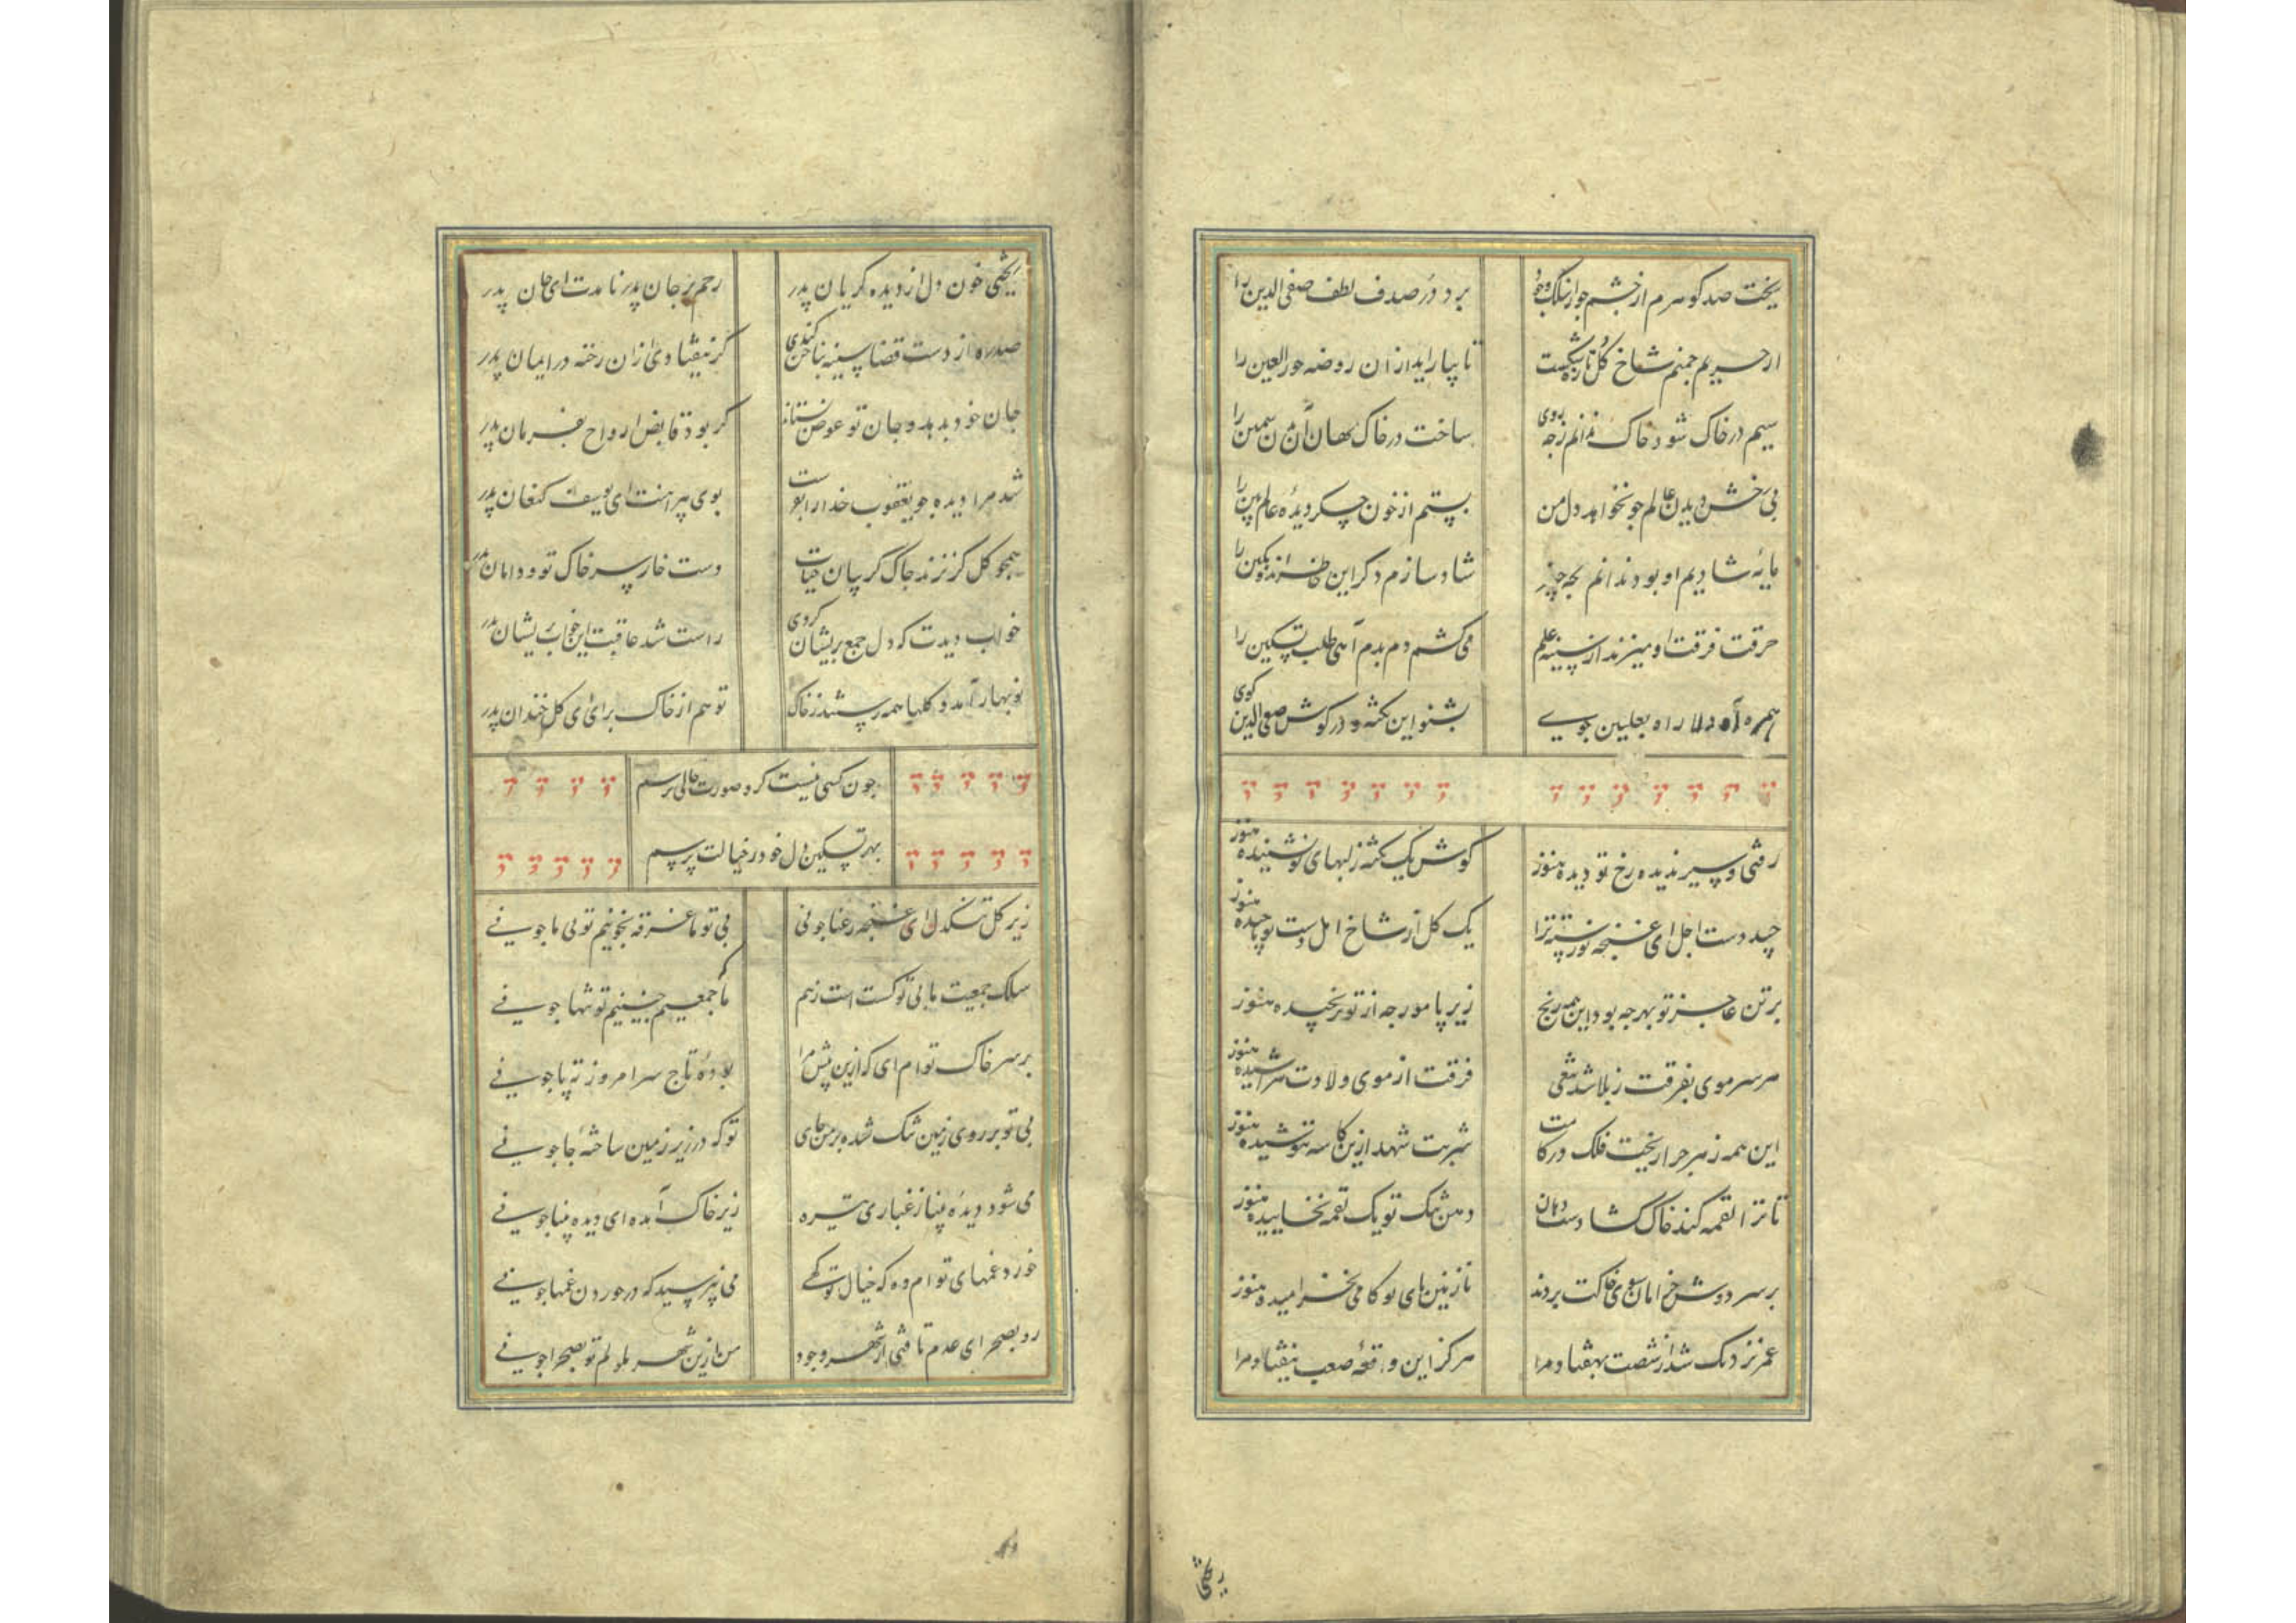 ریخت صد گوهرم از چشم جو از سلک وجود برد در صدف لطف صفی الدین را
از حریم چمنم شاخ گل تازه شکست تا بیاراید از ان روضه حور العین را
سیم در خاک شود خاک ندانم ز چه روی ساخت در خاک نهان آن تن سیمین را
بی رخش دیدن عالم چو نخواهد دل من بستم از خون جگر دیدهٔ عالم بین را
مایهٔ شادیم او بود ندانم بچه چیز شاد سازم دگر این خاطر اندوکین را
حرقت فرقت او میزند از سینه علم می کشم دم بدم آهی طلب تسکین را
همره آه دلا راه بعلیین جوی بشنو این نکته و در گوش صفی الدین گوی
رفتی و سیر ندیده رخ تو دیده هنوز گوش یک نکته ز لبهای تو نشنیده هنوز
چید دست اجل ای غنچه نورسته ترا یک گل از شاخ امل دست تو ناچیده هنوز
بر تن عاجز تو بهر چه بود این همه رنج زیر پا مورچه از تو نرنجیده هنوز
هر سر موی بفرقت ز بلا شد تیغی فرقت از موی ولادت نتراشیده هنوز
این همه زهر چرا ریخت فلک در کامت شربت شهد ازین کاسه ننوشیده هنوز
تا ترا لقمه کند خاک گشادست دهان دهن تنگ تو یک لقمه نخاییده هنوز
بر سر دوش خرامان سوی خاکت بردند نازنین پای تو گامی نخرامیده هنوز
عمر نزدیک شد از شصت بهفتاد مرا هرگز این واقعهٔ صعب نیفتاد مرا
ریختی
ریختی خون دل از دیده گریان پدر رحم بر جان پدر نامدت ای جان پدر
صد ره از دست قضا سینه بناخن کندی گر نیفتادی از ان رخنه در ایمان پدر
جان خود بدهد و جان تو عوض نستاند گر بود قابض ارواح بفرمان پدر
شد مرا دیده چو یعقوب خدا را بوست بوی پیراهنت ای یوسف کنعان پدر
همچو گل گر نزند چاک گریبان حیات دست خار سر خاک تو و دامان پدر
خواب دیدت که دل جمع پریشان کردی راست شد عاقبت این خواب پریشان پدر
نوبهار آمد و گلها همه رستند ز خاک تو هم از خاک برای ای گل خندان پدر
چون کسی نیست که صورت حالی پرسم
بهر تسکین دل خود ز خیالت پرسم
زیر گل تنگدل ای غنچه رعنا چونی بی تو ما غرقه بخونیم تو بی ما چونی
سلک جمعیت ما بی تو گسست است ز هم ما که جمعیم چنینیم تو تنها چونی
بر سر خاک تو ام ای که ازین پیش مرا بودهٔ تاج سر امروز ته پا چونی
بی تو بر روی زمین تنگ شده بر من جای تو که در زیر زمین ساختهٔ جا چونی
می شود دیدهٔ بینا ز غباری تیره زیر خاک آمده ای دیده بینا چونی
خورد غمهای تو ام وه که خیال تو گهی می نپرسید که در خوردن غمها چونی
رو بصحرای عدم تافتی از شهر وجود من ازین شهر ملولم تو بصحرا چونی